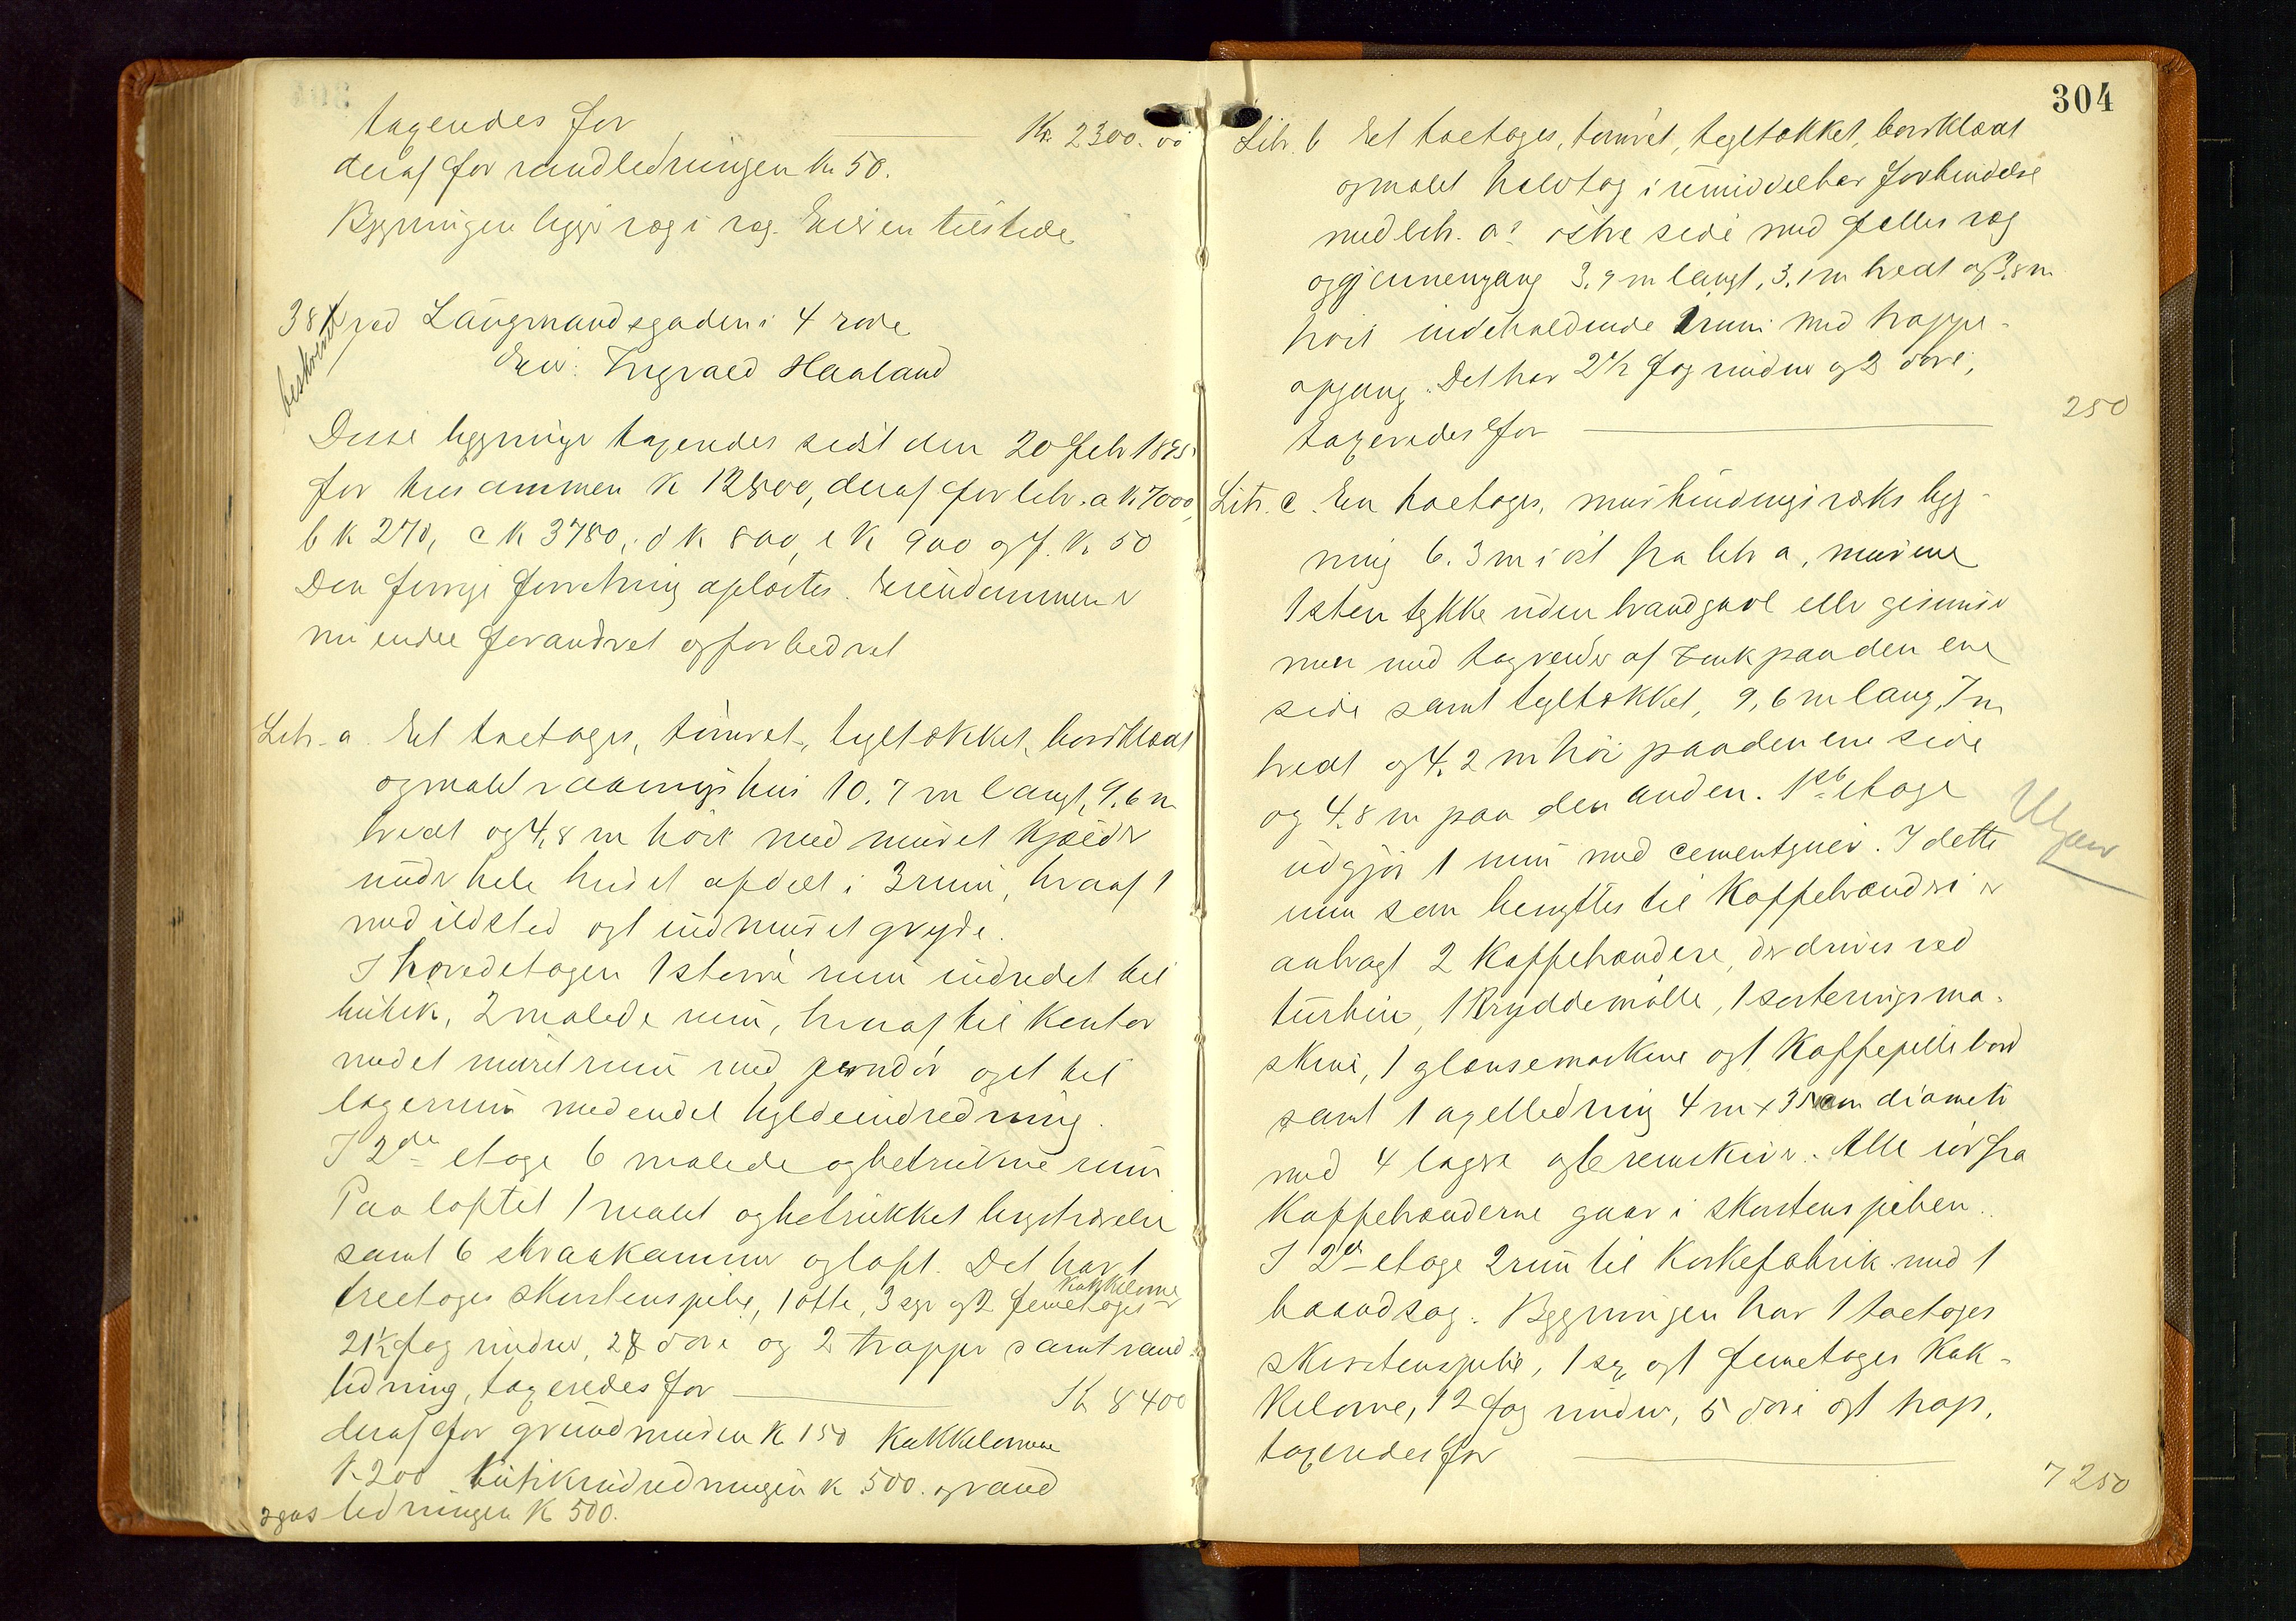 taxeredes for Kr. 2300.00
deraf for vandledningen Kr 50.
Bygningen ligger væg i væg. Eieren tilstede
381 ved Laugmandsgaden i 4 rode
beskrevet
Eier: Ingvald Haaland
Disse bygninger taxeredes sidst den 20 Febr 1895
for tilsammen K 12800, deraf for litr. a K. 7000,
b K 270, c K 3780, d K 800, e K 900 og f. K. 50
Den forrige forretning oplæstes. Eiendommen er
nu endel forandret og forbedret
Litr. a Et toetages, tømret, tegltækket, bordklædt
og malet vaaningshus 10.7 m langt, 9.6 m
bredt og 4,8 m høit med muret kjælder
under hele huset afdelt i 3 rum, hvoraf 1
med ildsted og 1 indmuret gryde.
I hovedetagen 1 større rum indredet til
butik, 2 malede rum, hvoraf til kontor
med et muret rum med jerndør og et til
lagerrum med endel hyldeindredning.
I 2den etage 6 malede og betrukne rum
Paa loftet 1 malet og betrukket brystværelse
samt 6 skraakammer og loft. Det har 1
treetages skorstenspibe, 1 otte, 3 sex og 2 femetages kakkelovne
21½ fag vinduer, 28 døre og 2 trapper samt vand-
ledning, taxeredes for K 8400
deraf for grundmuren K 150 Kakkelovnene
K 200 butikindredningen K 500. og vand
og gas ledningen K 500.
304
Litr. b Et toetages, tømret, tegltækket, bordklædt
og malet halvtag i umiddelbar forbindelse
med litr. a's østre side med fælles væg
og gjennemgang 3.9 m langt, 3.1 m bredt og 3,8 m
høit indeholdende 1 rum med trappe-
opgang. Det har 2½ fag vinduer og 2 døre,
taxeredes for 250
Litr. c. En toetages, murbindingsværks byg-
ning 6.3 m i øst fra litr a, murene
1 sten tykke uden brandgavl eller gesimser
men med tagrender af zink paa den ene
side samt tegltækket, 9,6 m lang, 7 m
bredt og 4.2 m høi paa den ene side
og 4.8 m paa den anden. 1ste etage
udgjør 1 rum med cementgulv. I dette
rum som benyttes til Kaffebrænderi er
anbragt 2 Kaffebrændere, der drives ved
turbin, 1 Kryddemølle, 1 sorteringsma-
skine, 1 glansemaskine og 1 Kaffepillebord
samt 1 axelledning 4 m x 35 mm diameter
med 4 lagre og 6 remskiver. Alle rør fra
Kaffebrænderne gaar i skorstenspiben.
I 2den etage 2 rum til Korkefabrik med 1
baandsag. Bygningen har 1 toetages
skorstenspibe, 1 sex og 1 femetages Kak-
kelovne, 12 fag vinduer, 5 døre og 1 trap.
taxeredes for 7250